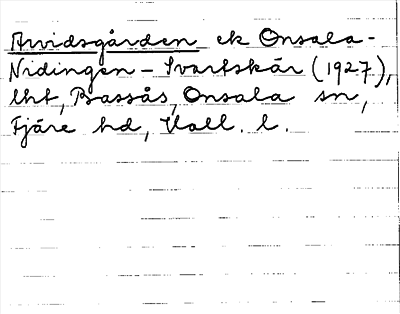 Arvidsgården ek Onsala-
Nidingen - Svartskär (1927),
lht, Bassås, Onsala sn,
Fjäre hd, Hall. l.